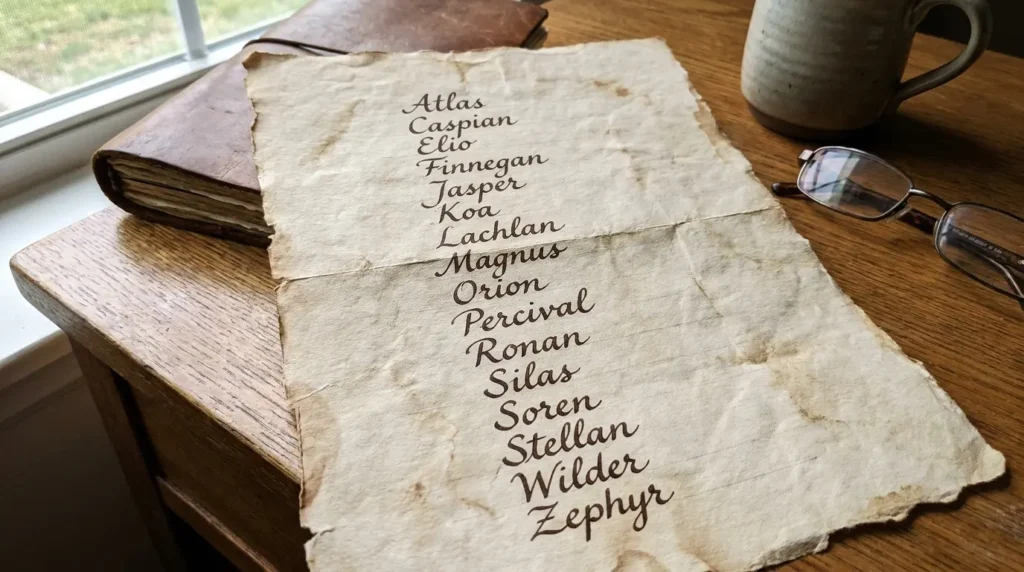 Atlas
Caspian
Elio
Finnegan
Jasper
Koa
Lachlan
Magnus
Orion
Percival
Ronan
Silas
Soren
Stellan
Wilder
Zephyr